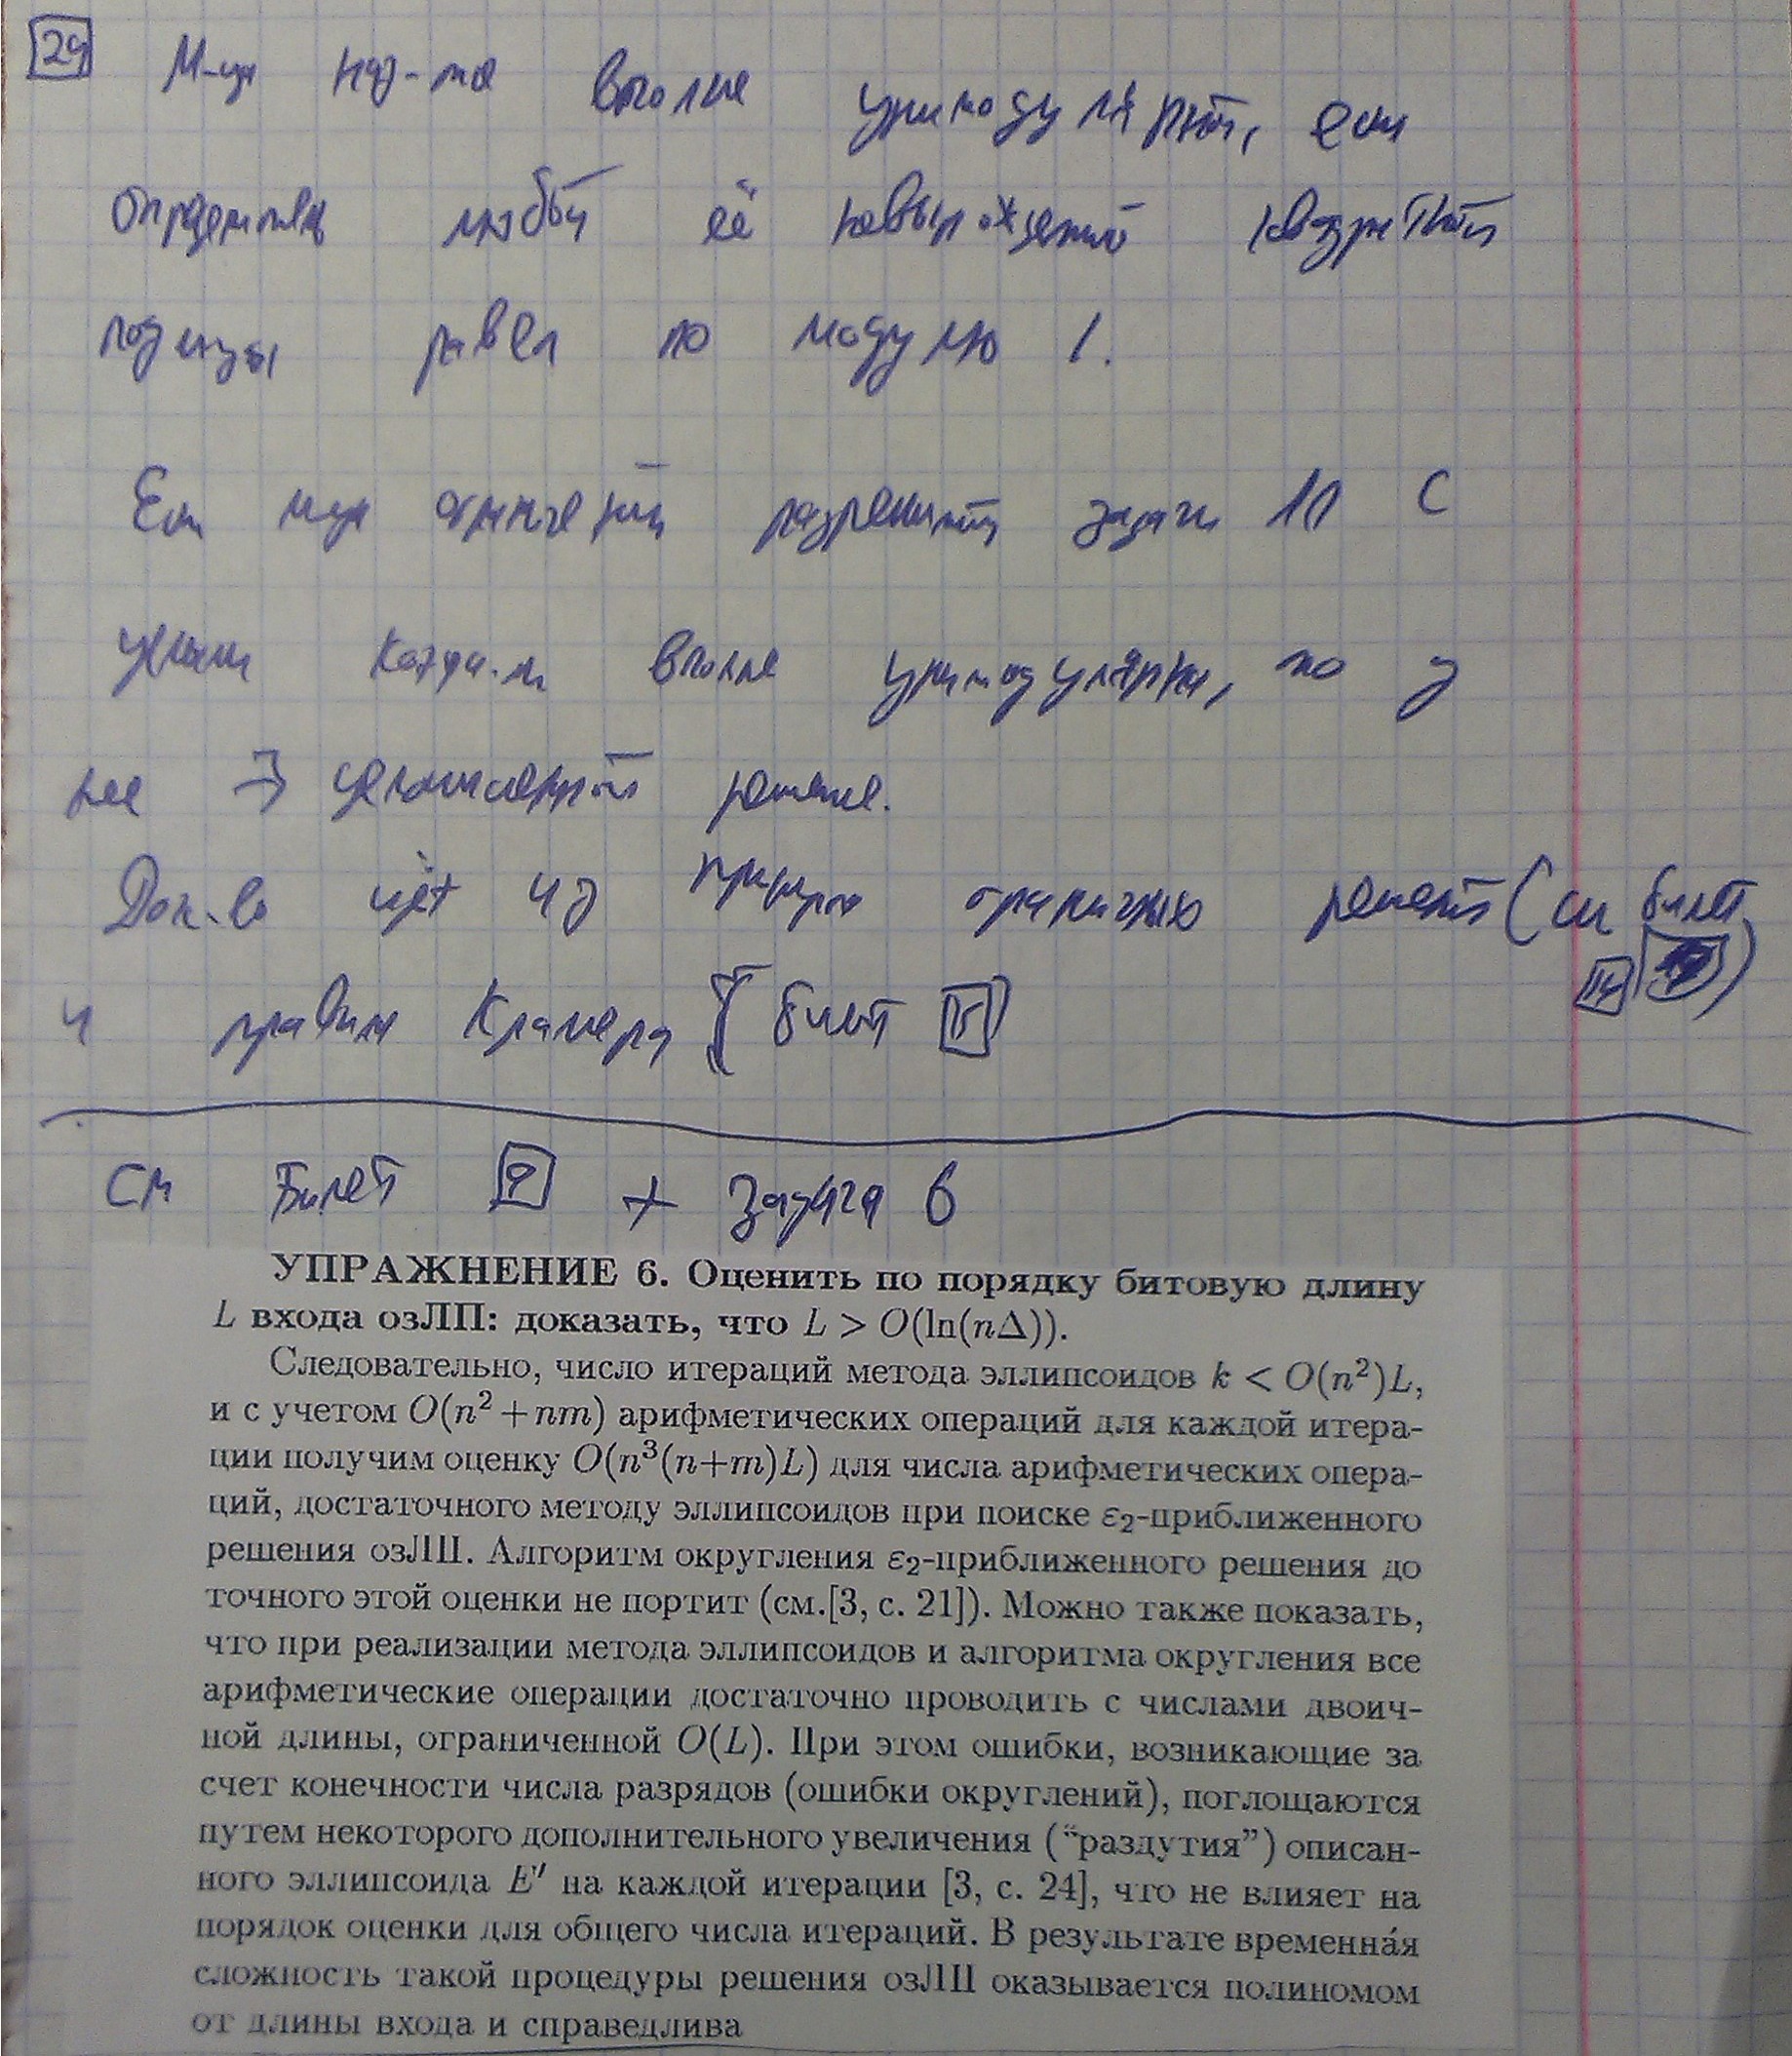 24
М-ца наз-тся вполне унимодулярной, если
определитель любой её невырожденной квадратной
подм-цы равен по модулю 1.
Если м-ца ограничений разрешимой задачи ЛП с
целыми коэфф-ми вполне унимодулярна, то у
нее ∃ целочисленное решение.
Док-во идёт из принципа граничных решений (см билет
14)
и правила Крамера (билет 15)
См Билет 9 + Задача 6
УПРАЖНЕНИЕ 6. Оценить по порядку битовую длину
L входа озЛП: доказать, что L > O(ln(nΔ)).
Следовательно, число итераций метода эллипсоидов k < O(n²)L,
и с учетом O(n² + nm) арифметических операций для каждой итера-
ции получим оценку O(n³(n+m)L) для числа арифметических опера-
ций, достаточного методу эллипсоидов при поиске ε₂-приближенного
решения озЛП. Алгоритм округления ε₂-приближенного решения до
точного этой оценки не портит (см.[3, с. 21]). Можно также показать,
что при реализации метода эллипсоидов и алгоритма округления все
арифметические операции достаточно проводить с числами двоич-
ной длины, ограниченной O(L). При этом ошибки, возникающие за
счет конечности числа разрядов (ошибки округлений), поглощаются
путем некоторого дополнительного увеличения (“раздутия”) описан-
ного эллипсоида E′ на каждой итерации [3, с. 24], что не влияет на
порядок оценки для общего числа итераций. В результате временна́я
сложность такой процедуры решения озЛП оказывается полиномом
от длины входа и справедлива